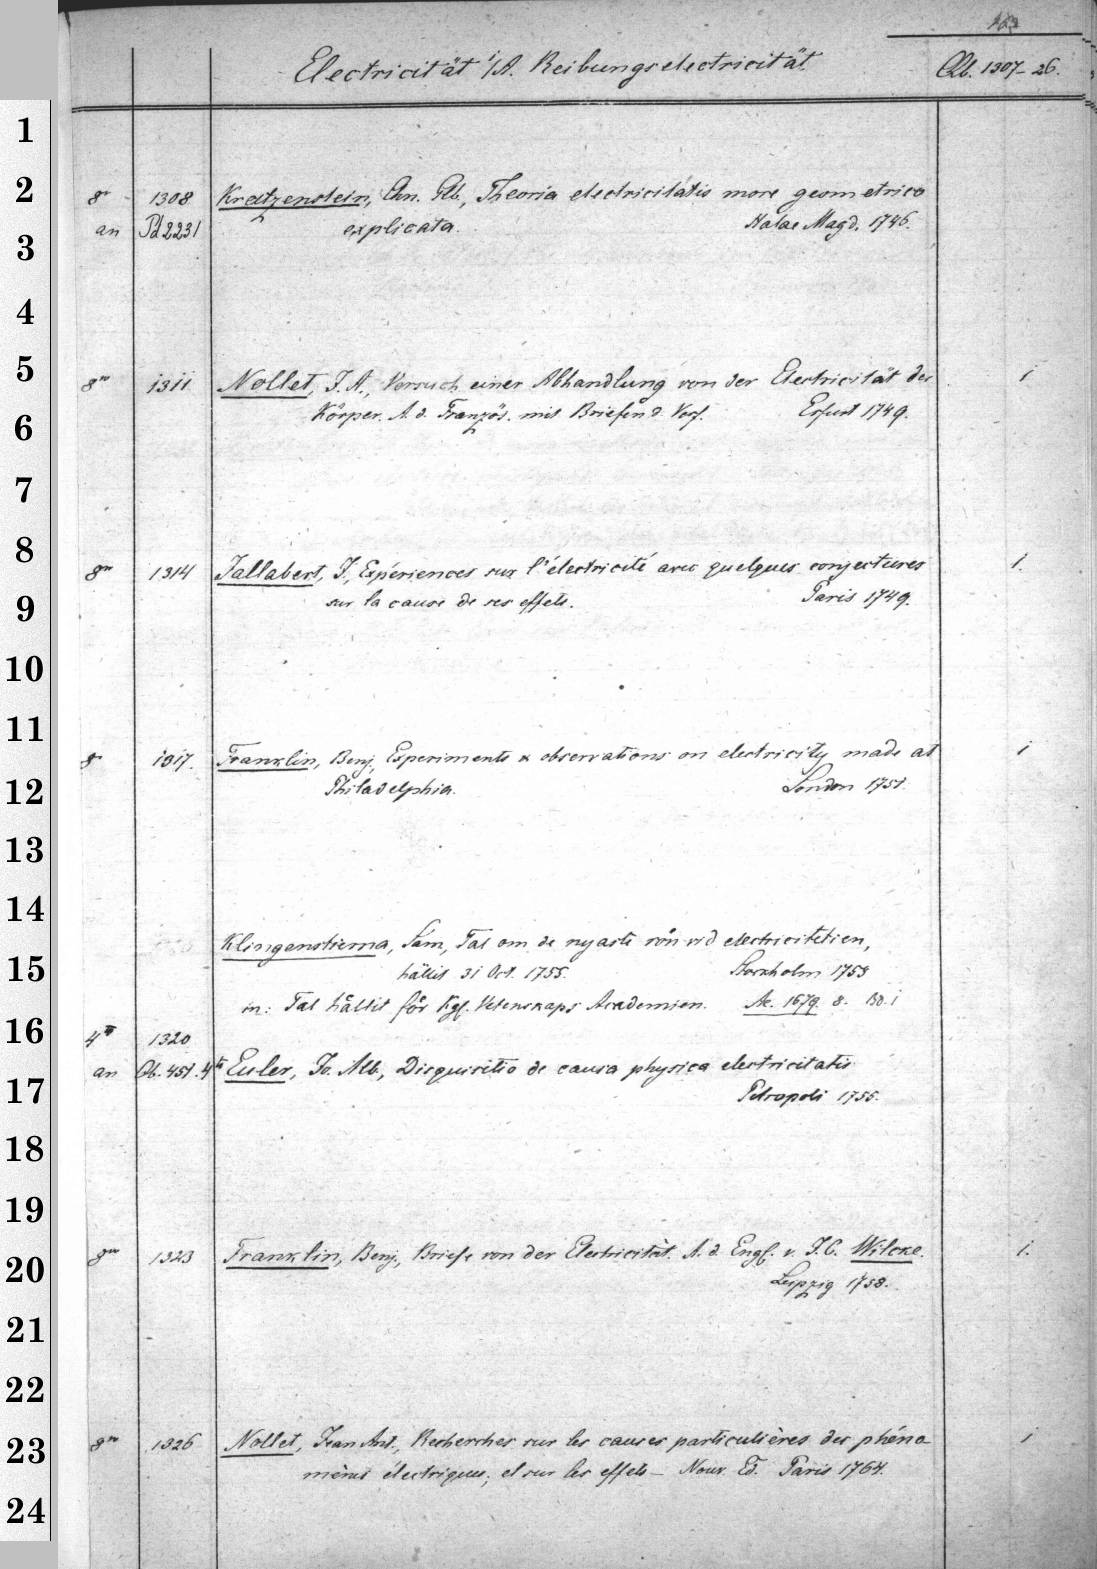 163
Electricität /A. Reibungselectricität. Qb. 1307-26.
1
2
3
4
5
6
7
8
9
10
11
12
13
14
15
16
17
18
19
20
21
22
23
24
8° 1308 Kratzenstein, Chn. Glb., Theoria electricitatis more geometrico
an Pd 2231 explicata. Halae Magd. 1746.
8° 1311 Nollet, J. A., Versuch einer Abhandlung von der Electricität der 1
Körper. A. d. Französ. mit Briefen d. Verf. Erfurt 1749.
8° 1314 Jallabert, J., Expériences sur l'électricité avec quelques conjectures 1.
sur la cause de ses effets. Paris 1749.
8° 1317. Franklin, Benj., Experiments & observations on electricity made at 1
Philadelphia. London 1751.
Klingenstierna, Sam., Tal om de nyaste rön vid electriciteten,
hållit 31 Oct. 1755. Stockholm 1755
in: Tal hållit för Kgl. Vetenskaps Academien. Ac. 1679. 8. Bd. 1
4° 1320
an Qb. 451. 4° Euler, Jo. Alb., Disquisitio de causa physica electricitatis
Petropoli 1755.
8° 1323 Franklin, Benj., Briefe von der Electricität. A. d. Engl. v. J. C. Wilcke. 1.
Leipzig 1758.
8° 1326 Nollet, Jean Ant., Recherches sur les causes particulières des phéno- 1
mènes électriques, et sur les effets — Nouv. Ed. Paris 1764.